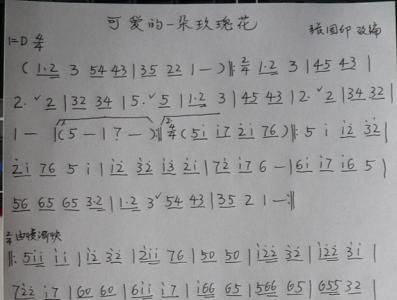 可爱的一朵玫瑰花
1=D 4/4 张国印 改编
( 1·2 3 54 43 | 35 22 1 — ) ‖: 2/4 1·2 3 | 45 43 |
2· ˇ2 | 32 34 | 5· ˇ5 | 1·2 3 | 45 43 | 2· ˇ2 | 34 32 |
1 — | (5 — | 7 — ) :‖ 4/4 ( 5i i7 2i 76 ) ‖: 5 i i2 32 |
2i 76 5 i | i2 32 i3 2i | 72 i7 6 — | 6i i7 i6 5 |
56 65 65 3·2 | 1·2 3ˇ 54 43 | 35 2 1 — :‖
2/4 由慢渐快
‖: 5ii ii | i2 32 | 2ii 76 | 50 50 | i22 32 | i22 3i |
722 i7 | 60 60 | 6ii i7 | i66 65 | 566 65 | 655 32 |